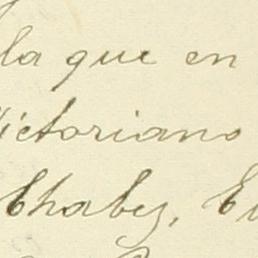 la que en
Victoriano
Chabez, E